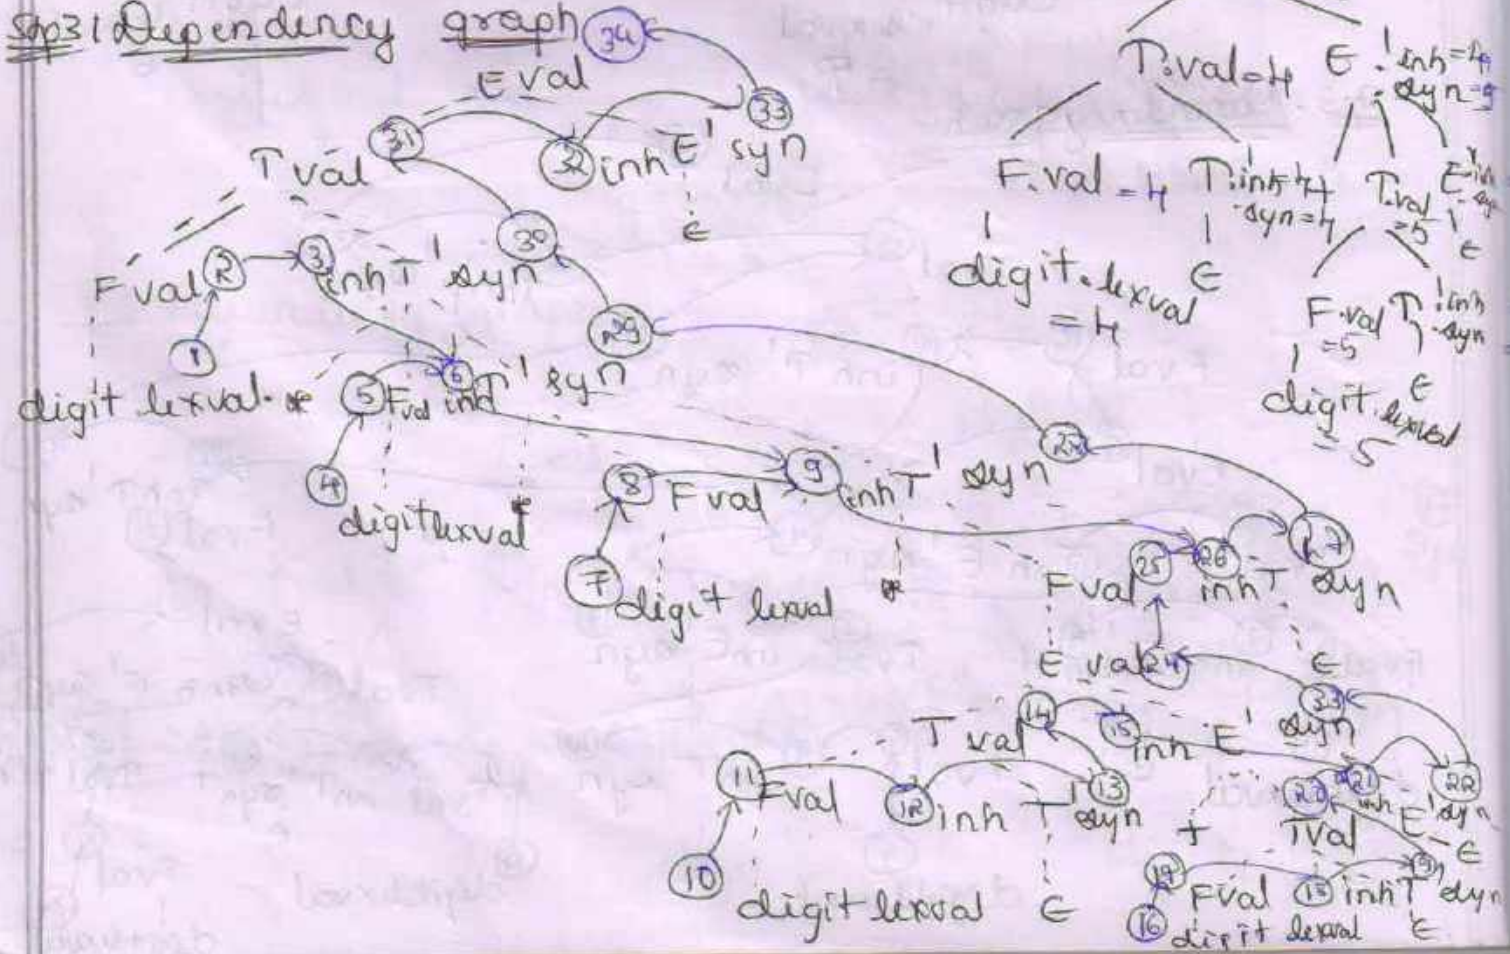 Step3 | Dependency graph 34
E val
31 32 inh E' syn 33
T val
30 ε
F val 2 3 inh T' syn
1 29
digit lexval * 5 Fval 6 inh T' syn
28
4 digit lexval *
8 F val 9 inh T' syn
7 digit lexval *
25 26 27
F val inh T' syn
E val 24 ε
14 15 inh E' syn 23
T val
11 Fval 12 inh T' syn 13
+ 20 21 22
T val inh E' syn
ε
10 digit lexval ε
17 F val 18 inh T' syn 19
16 digit lexval ε
T.val=4 E'.inh=4
.syn=9
F.val=4 T'.inh=4 T.val E'.inh
.syn=4 =5 .syn
ε
digit.lexval ε
=4
F.val T'.inh
=5 .syn
ε
digit.lexval
=5